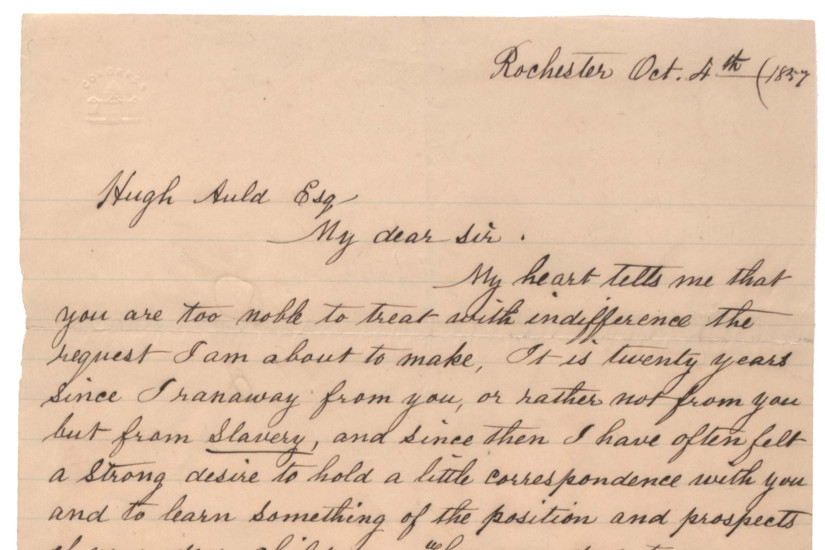 CONGRESS
Rochester Oct. 4th (1857
Hugh Auld Esq
My dear sir.
My heart tells me that
you are too noble to treat with indifference the
request I am about to make, It is twenty years
since I ranaway from you, or rather not from you
but from Slavery, and since then I have often felt
a strong desire to hold a little correspondence with you
and to learn something of the position and prospects